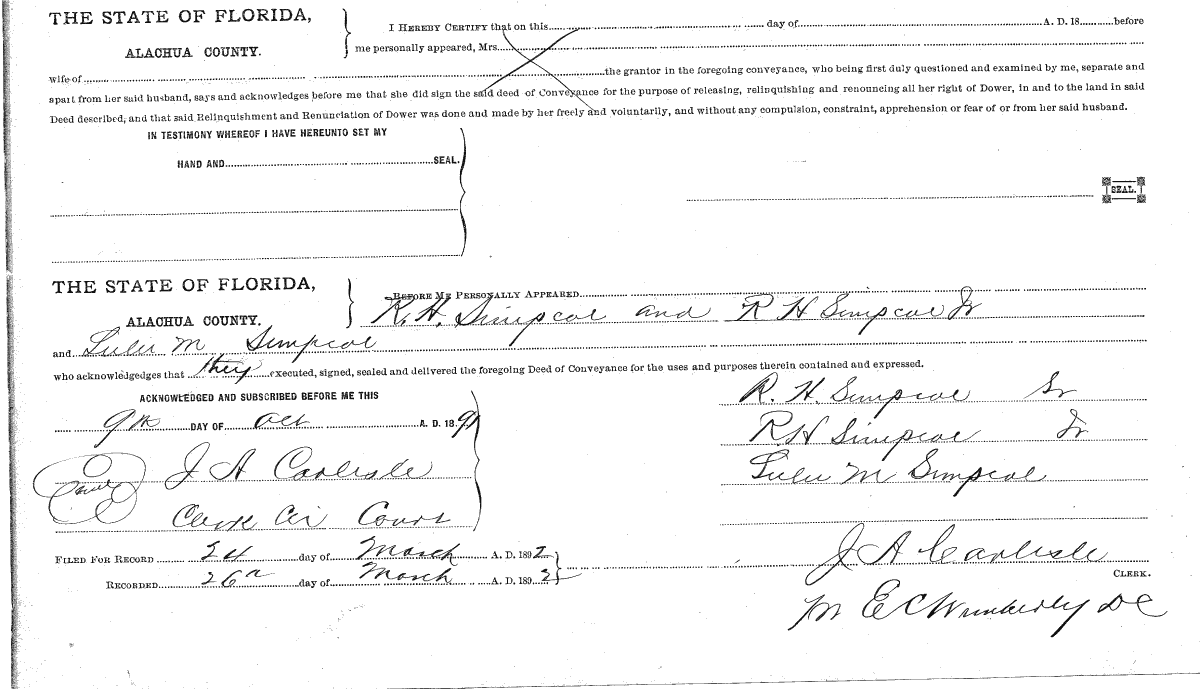 THE STATE OF FLORIDA,
ALACHUA COUNTY.
I HEREBY CERTIFY that on this day of A. D. 18 before
me personally appeared, Mrs.
wife of the grantor in the foregoing conveyance, who being first duly questioned and examined by me, separate and
apart from her said husband, says and acknowledges before me that she did sign the said deed of Conveyance for the purpose of releasing, relinquishing and renouncing all her right of Dower, in and to the land in said
Deed described, and that said Relinquishment and Renunciation of Dower was done and made by her freely and voluntarily, and without any compulsion, constraint, apprehension or fear of or from her said husband.
IN TESTIMONY WHEREOF I HAVE HEREUNTO SET MY
HAND AND SEAL.
SEAL.
THE STATE OF FLORIDA,
ALACHUA COUNTY.
BEFORE ME PERSONALLY APPEARED
R. H. Simpcoe and R H Simpcoe Jr
and Lulu M Simpcoe
who acknowledgedges that they executed, signed, sealed and delivered the foregoing Deed of Conveyance for the uses and purposes therein contained and expressed.
ACKNOWLEDGED AND SUBSCRIBED BEFORE ME THIS
9th DAY OF Oct A. D. 18 91
J A Carlisle
Clerk Cir Court
R. H. Simpcoe Sr
R H Simpcoe Jr
Lulu M Simpcoe
FILED FOR RECORD 24 day of March A. D. 1892
RECORDED 26th day of March A. D. 1892
J A Carlisle
CLERK.
E C Wimberly DC